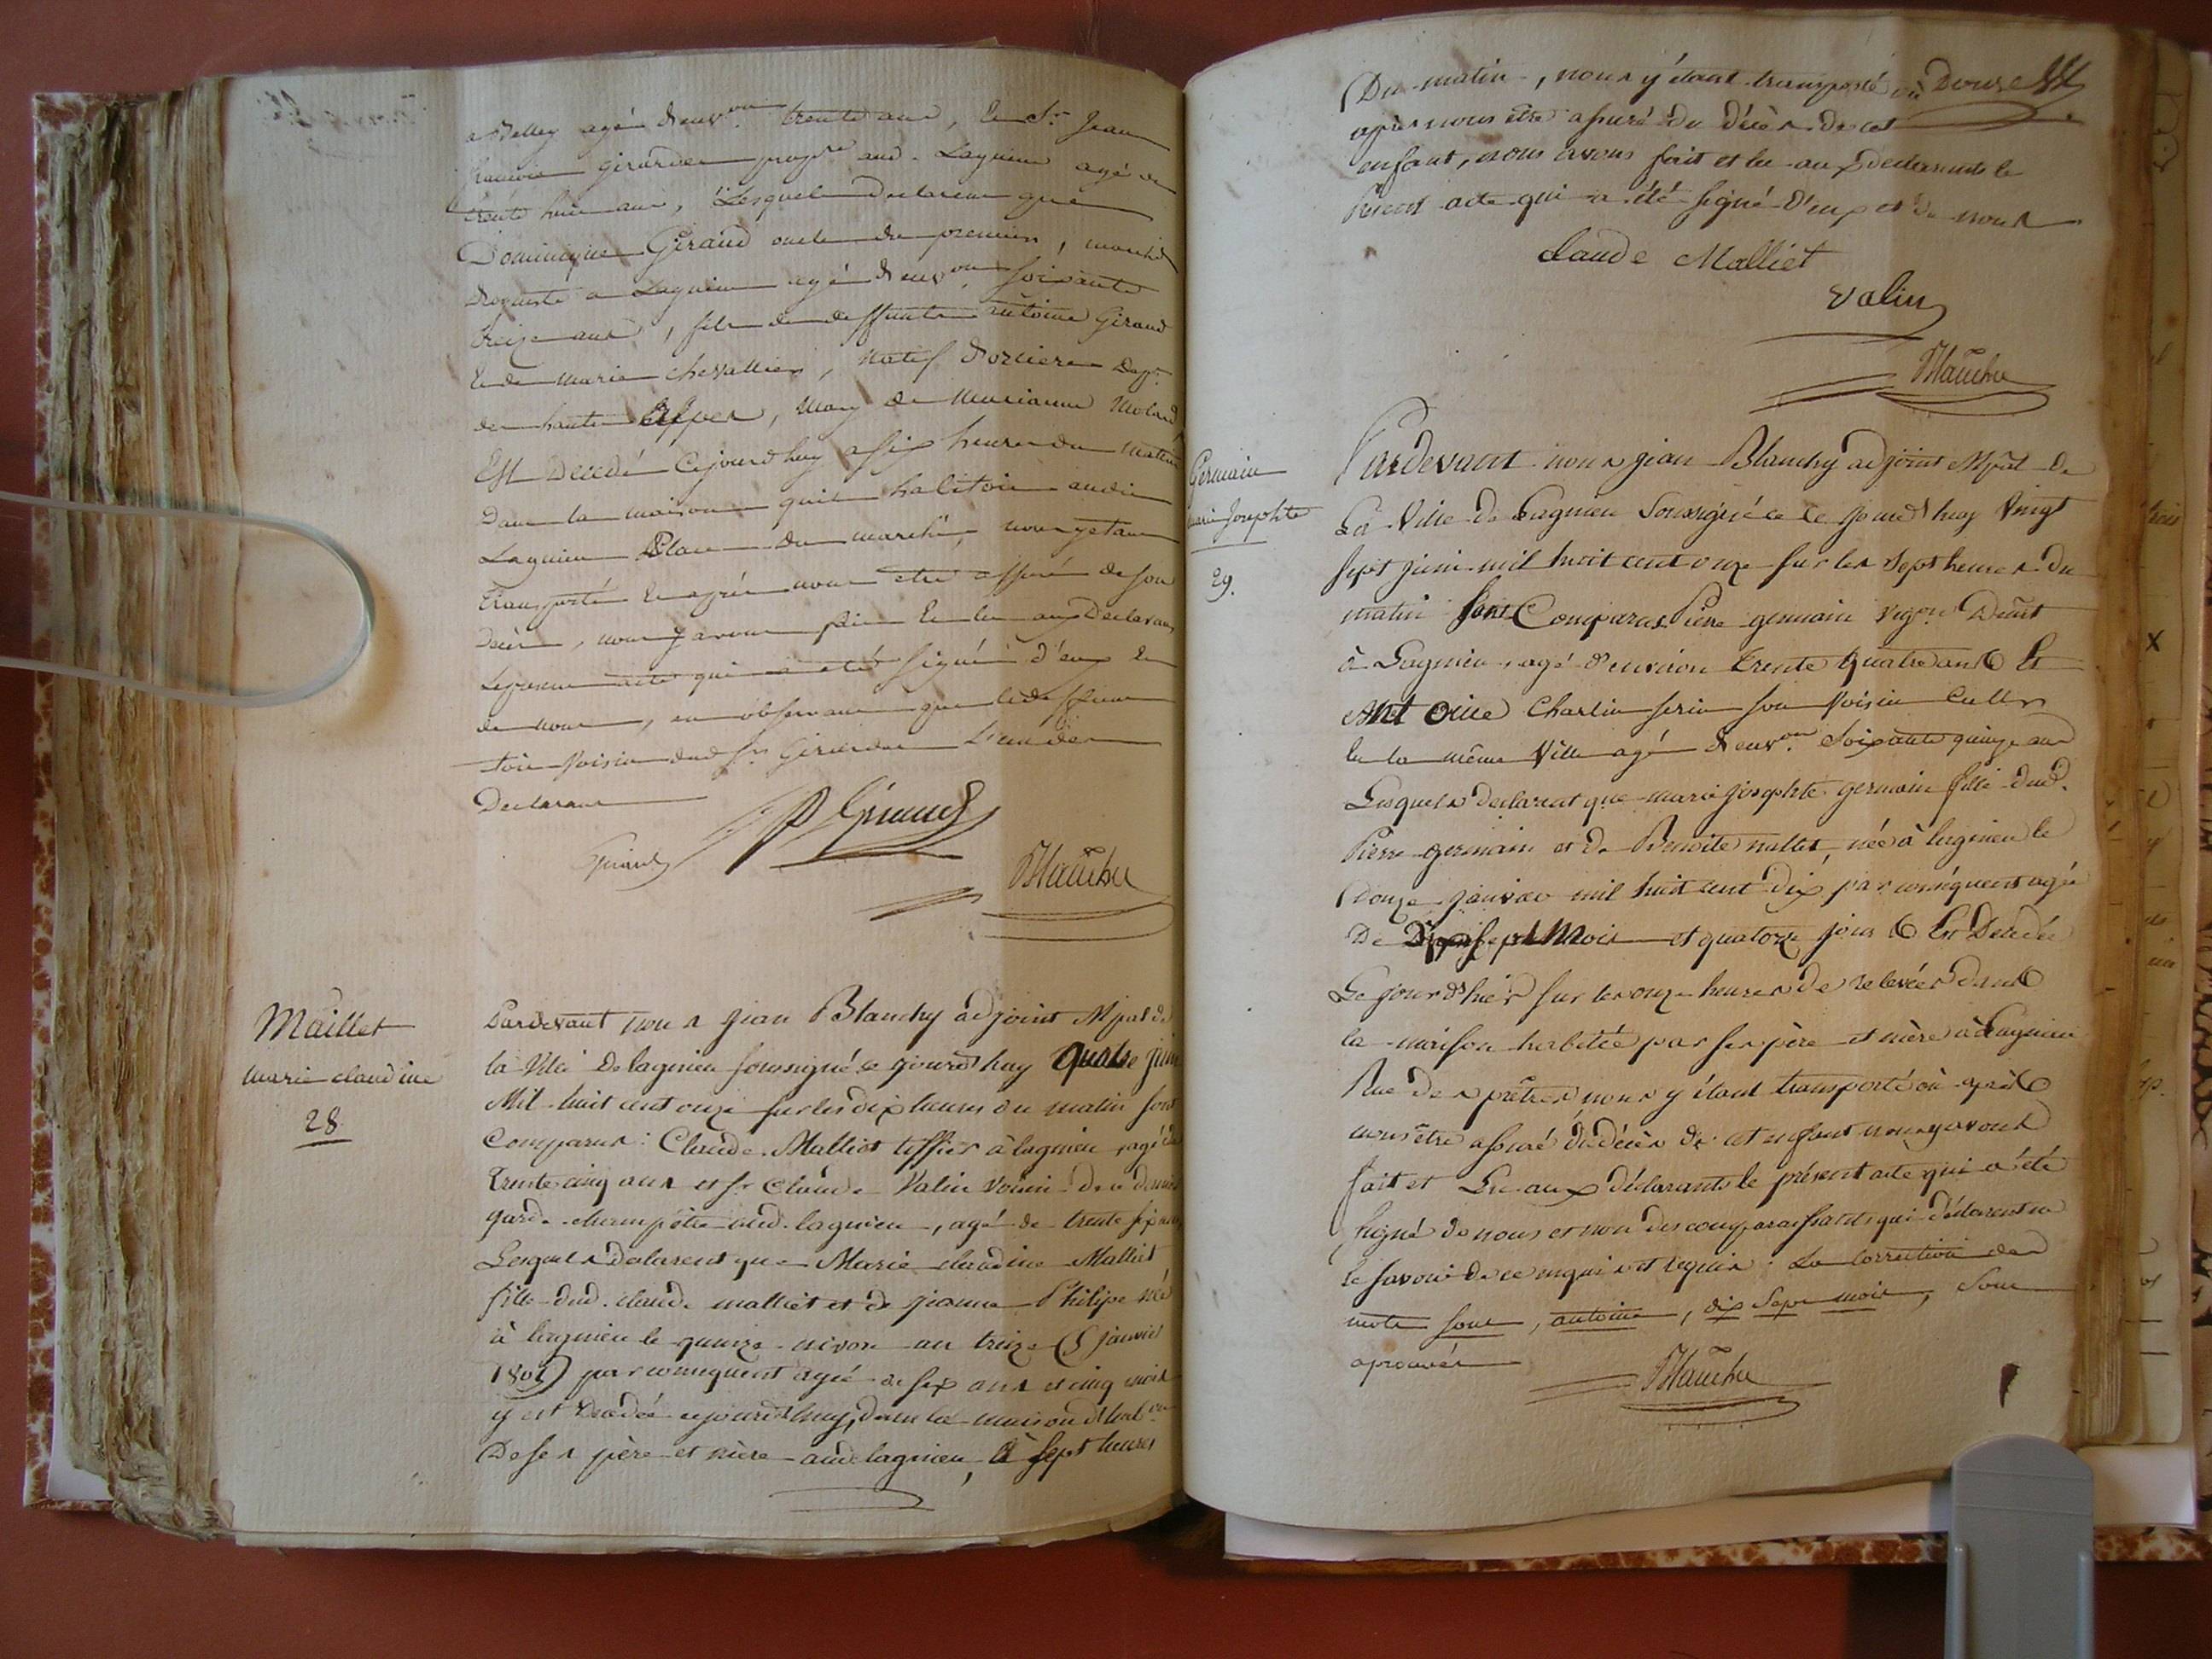 a Belley agé d'env.on trente ans, le Sr Jean
françois girarden prop.re aud. Lagnieu agé de
trente huit ans, Lesquels declarent que
Dominique Giraud oncle du premier, marchd
droguiste a Lagnieu agé d'env.on soixante
treize ans, fils de deffunts antoine Giraud
et de marie chevallier, natif d'orciere Dept
des hautes Alpes, mary de marianne Molard
Est Decedé Cejourd'huy a six heures du matin
Dans la maison quil habitoit audit
Lagnieu Place du marché, nous y etant
transporté et après nous etre assuré de son
decès, nous y avons fait et lu aux Declarans
le present acte qui a été signé d'eux et
de nous, en observant que le deffunt
etoit voisin dud Sr Girarden L'un des
Declarans
Giraud
Blanchy
Maillet
marie claudine
28.
Pardevant nous jean Blanchy adjoint Mpal de
la Ville de lagnieu soussigné ce jourd'huy quatre juin
Mil huit cent onze sur les dix heures du matin sont
Comparus: Claude Malliet tissier à lagnieu, agé de
trente cinq ans et Sr Claude Valin voisin
garde champêtre aud. lagnieu, agé de trente six ans
Lesquels declarent que Marie claudine Malliet
fille dud. claude malliet et de jeanne Philipe née
à lagnieu le quinze nivose an treize (5 janvier
1805) par conséquent agée de six ans et cinq mois
y est decedée cejourd'huy, dans la maison d'hab.on
De ses père et mère aud. lagnieu, à sept heures
Du matin, nous y étant transporté où
après nous être assuré du décès de cet
enfant, nous avons fait et lu aux declarants le
Présent acte qui a été signé d'eux et de nous
claude Malliet
valin
Blanchy
Germain
marie Josephte
29.
Pardevant nous jean Blanchy adjoint Mpal de
La Ville de Lagnieu Soussigné ce jourd'huy Vingt
sept juin mil huit cent onze sur les sept heures du
matin sont Comparus Pierre germain vig.on DeMt
à Lagnieu, agé d'environ trente quatre ans Et
Antoine Charlin serin son voisin cult.r
en la même Ville agé d'env.on Soixante quinze ans
Lesquels declarent que marie josephte germain fille dud.
Pierre germain et de Benoite nallet, née à lagnieu le
Douze janvier mil huit cent dix par conséquent agée
De Dix sept Mois et quatorze jours Est Decedée
Le jour d'hier sur les onze heures de relevées dans
la maison habitée par ses père et mère à Lagnieu
Rue des prêtres nous y étant transporté où après
nous être assuré du décès de cet enfant nous y avons
fait et Lu aux déclarants le présent acte qui a été
signé de nous et non des comparaissants qui déclarent ne
le savoir de ce enquis et requis. La correction des
mots sont, antoine, dix sept mois, sont
aprouvés
Blanchy